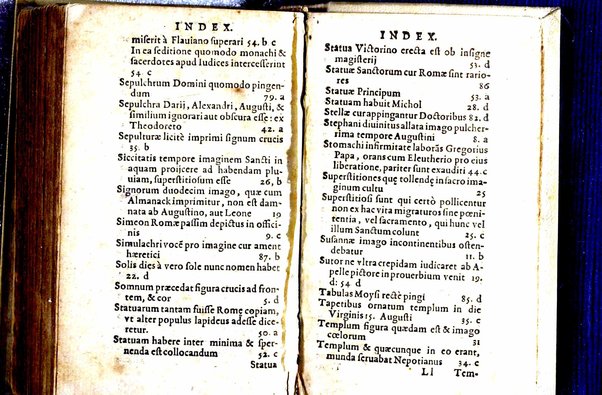 INDEX.
miserit à Flauiano superari 54. b c
In ea seditione quomodo monachi &
sacerdotes apud Iudices intercesserint
54. c
Sepulchrum Domini quomodo pingen-
dum 79. a
Sepulchra Darij, Alexandri, Augusti, &
similium ignorari aut obscura esse: ex
Theodoreto 42. a
Sepulturæ licitè imprimi signum crucis
35. b
Siccitatis tempore imaginem Sancti in
aquam proijcere ad habendam plu-
uiam, superstitiosum esse 26, b
Signorum duodecim imago, quæ cum
Almanack imprimitur, non est dam-
nata ab Augustino, aut Leone 19
Simeon Romæ passim depictus in offici-
nis 9. c
Simulachri vocē pro imagine cur ament
hæretici 87. b
Solis dies à vero sole nunc nomen habet
22. d
Somnum præcedat figura crucis ad fron-
tem, & cor 5. d
Statuarum tantam fuisse Romę copiam,
vt alter populus lapideus adesse dice-
retur. 50. a
Statuam habere inter minima & sper-
nenda est collocandum 52. c
Statua
INDEX.
Status Victorino erecta est ob insigne
magisterij 53. d
Statuæ Sanctorum cur Romæ sint rario-
res 86
Statuæ Principum 53. a
Statuam habuit Michol 28. d
Stellæ cur appingantur Doctoribus 82. d
Stephani diuinitus allata imago pulcher-
rima tempore Augustini 8. a
Stomachi infirmitate laborās Gregorius
Papa, orans cum Eleutherio pro eius
liberatione, pariter sunt exauditi 44. c
Superstitiones quę tollendę in sacro ima-
ginum cultu 25
Superstitiosi sunt qui certò pollicentur
non ex hac vita migraturos sine pœni-
tentia, vel sacramento, qui hunc vel
illum Sanctum colunt 25. c
Susannæ imago incontinentibus osten-
debatur 11. b
Sutor ne vltra crepidam iudicaret ab A-
pelle pictore in prouerbium venit 19.
d: 54 d
Tabulas Moysi rectè pingi 85. d
Tapetibus ornatum templum in die
Virginis 15. Augusti 35. c
Templum figura quædam est & imago
cœlorum 31
Templum & quæcunque in eo erant,
munda seruabat Nepotianus 34. c
Ll Tem-